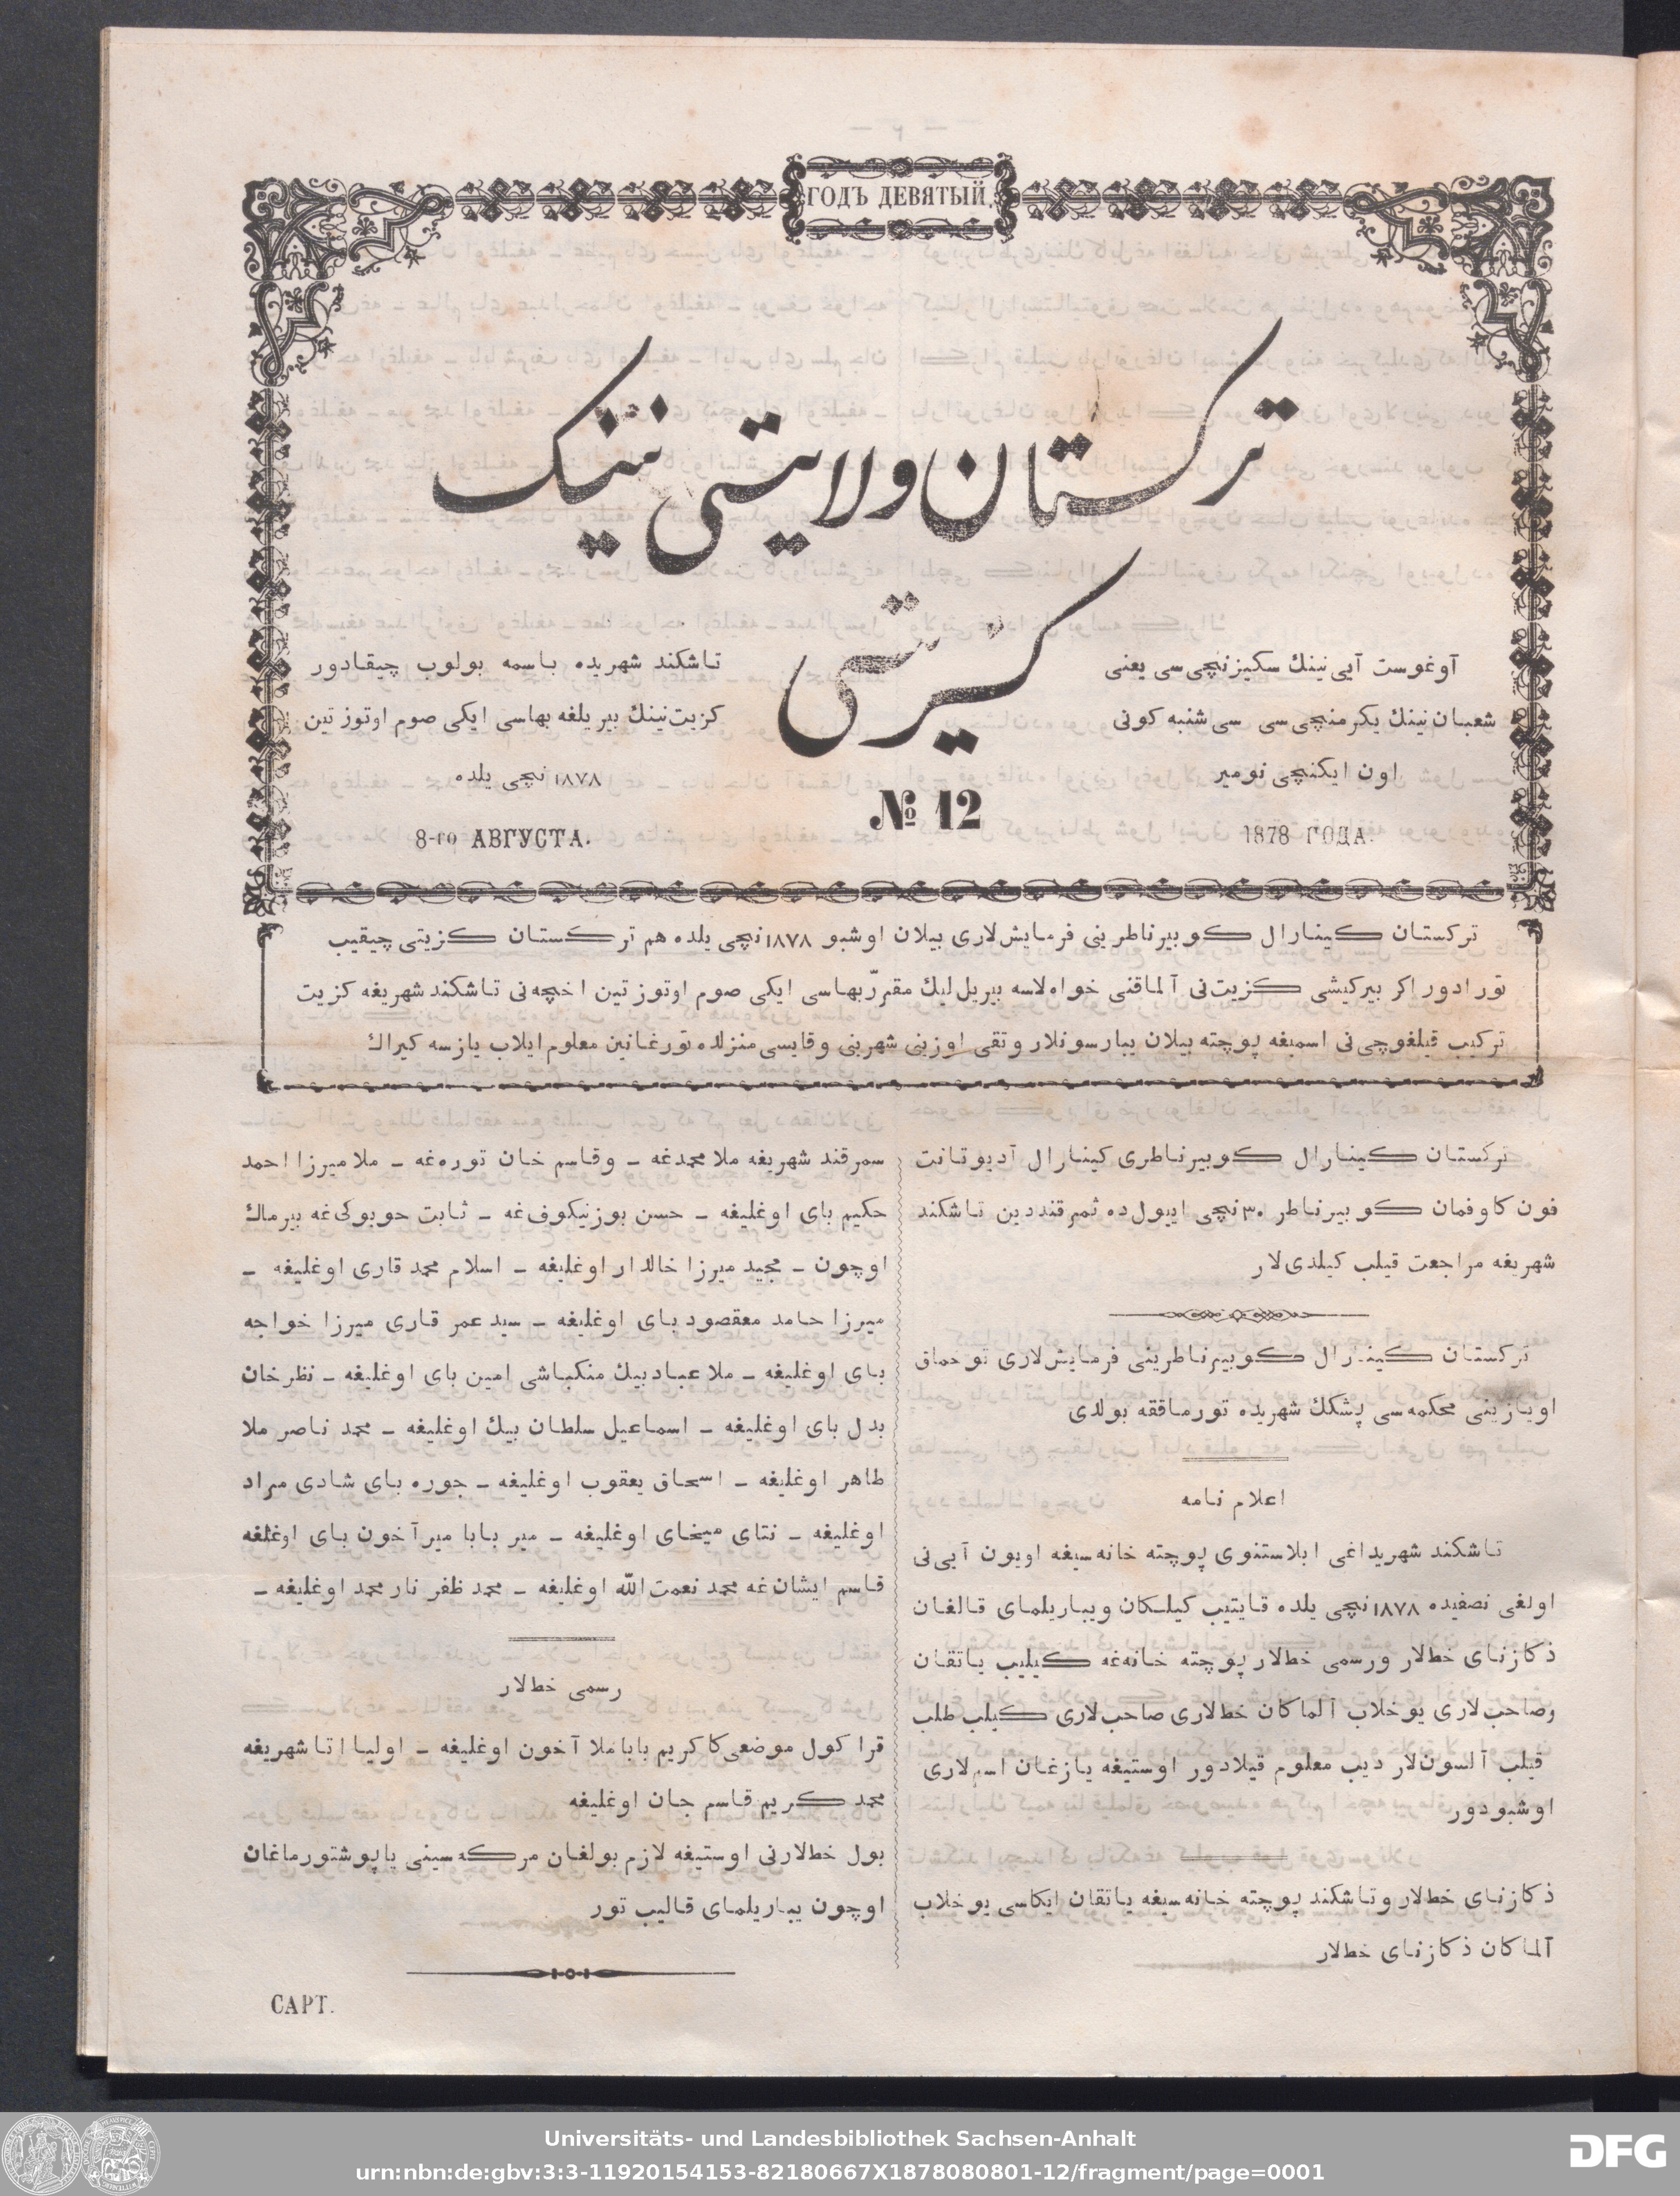 ГОДЪ ДЕВЯТЫЙ.
ترکستان ولایتی نینک
کزیتی
آوغوست آیی نینك سکیزنچی سی یعنی
شعبان نینك یکرمنچی سی سی شنبه کونی
اون ایکنچی نومیر
1878 ГОДА.
№ 12
تاشکند شهریده باسمه بولوب چیقادور
کزیت نینك بیر یلغه بهاسی ایکی صوم اوتوز تین
۱۸۷۸ نچی یلده
8-го АВГУСТА.
ترکستان کینارال کوبیرناطرینی فرمایش لاری بیلان اوشبو ۱۸۷۸ نچی یلده هم ترکستان کزیتی چیقیب
تورادور اکر بیرکیشی کزیت نی آلماقنی خواه لاسه بیریل لیك مقررّ بهاسی ایکی صوم اوتوز تین اخچه نی تاشکند شهریغه کزیت
ترکیب قیلغوچی نی اسمیغه پوچته بیلان یبارسونلار وتقی اوزینی شهرینی وقایسی منزلده تورغانین معلوم ایلاب یازسه کیراك
ترکستان کینارال کوبیرناطری کینارال آدیوتانت
فون کاوفمان کوبیرناطر ۳۰ نچی اییول ده ثمرقنددین تاشکند
شهریغه مراجعت قیلب کیلدی لار
ترکستان کینارال کوبیرناطرینی فرمایش لاری توحماق
اویازینی محکمه سی پشکك شهریده تورماققه بولدی
اعلام نامه
تاشکند شهریداغی ابلاستنوی پوچته خانه سیغه اویون آیی نی
اولغی نصفیده ۱۸۷۸ نچی یلده قایتیب کیلکان ویباریلمای قالغان
ذکازنای خط لار ورسمی خط لار پوچته خانه غه کیلیب یاتقان
وصاحب لاری یوخلاب آلماکان خط لاری صاحب لاری کیلب طلب
قیلب آلسون لار دیب معلوم قیلادور اوستیغه یازغان اسم لاری
اوشبودور
ذکازنای خط لار وتاشکند پوچته خانه سیغه یاتقان ایکاسی یوخلاب
آلماکان ذکازنای خط لار
سمرقند شهریغه ملا محمدغه – وقاسم خان توره غه – ملا میرزا احمد
حکیم بای اوغلیغه – حسن بوزنیکوف غه – ثابت حوبوکی غه بیرماك
اوچون – مجید میرزا خالدار اوغلیغه – اسلام محمد قاری اوغلیغه –
میرزا حامد معقصود بای اوغلیغه – سید عمر قاری میرزا خواجه
بای اوغلیغه – ملا عبادبیك منکباشی امین بای اوغلیغه – نظرخان
بدل بای اوغلیغه – اسماعیل سلطان بیك اوغلیغه – محمد ناصر ملا
طاهر اوغلیغه – اسحاق یعقوب اوغلیغه – جوره بای شادی مراد
اوغلیغه – نتای میخای اوغلیغه – میر بابا میرآخون بای اوغلغه
قاسم ایشان غه محمد نعمت الله اوغلیغه – محمد ظفر نار محمد اوغلیغه –
رسمی خط لار
قرا کول موضعی کا کریم بابا ملا آخون اوغلیغه – اولیا اتا شهریغه
محمد کریم قاسم جان اوغلیغه
بول خط لارنی اوستیغه لازم بولغان مرکه سینی یاپوشتورماغان
اوچون یباریلمای قالیب تور
САРТ.
Universitäts- und Landesbibliothek Sachsen-Anhalt
urn:nbn:de:gbv:3:3-11920154153-82180667X1878080801-12/fragment/page=0001
DFG